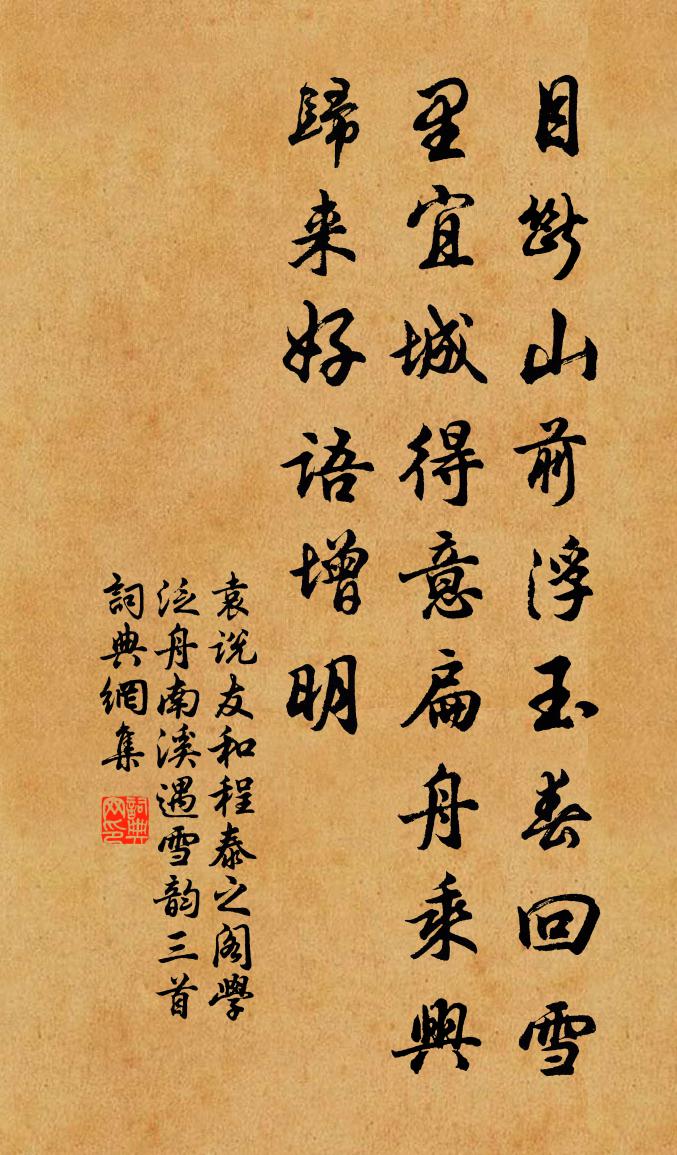 目断山前浮玉春回雪
里宜城得意扁舟乘興
歸来好语增明
袁说友和程泰之阁學
泛舟南溪遇雪韵三首
詞典網集
詞典
网印